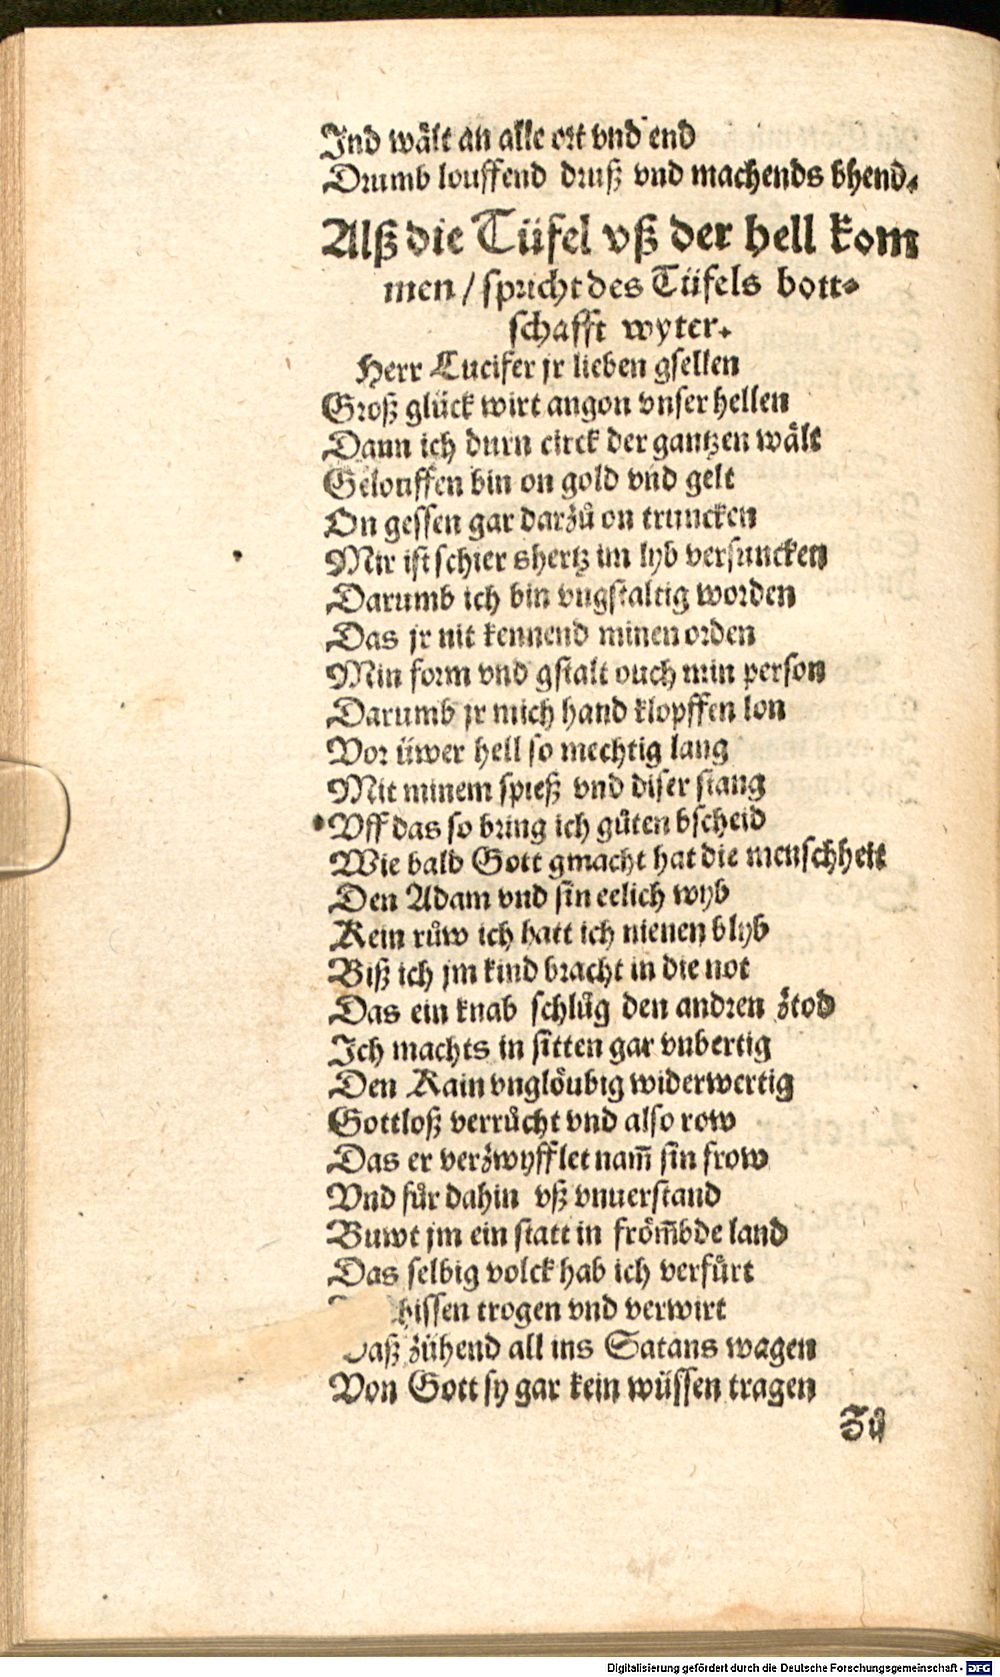 Ind wålt an alle ort vnd end
Drumb louffend druß vnd machends bhend.
Alß die Tüfel vß der hell kom
men / spricht des Tüfels bott-
schafft wyter.
Herr Lucifer jr lieben gsellen
Groß glück wirt angon vnser hellen
Dann ich durn circk der gantzen wålt
Gelouffen bin on gold vnd gelt
On gessen gar darzů on truncken
Mir ist schier shertz im lyb versuncken
Darumb ich bin vngstaltig worden
Das jr nit kennend minen orden
Min form vnd gstalt ouch min person
Darumb jr mich hand klopffen lon
Vor üwer hell so mechtig lang
Mit minem spieß vnd diser stang
Vff das so bring ich gůten bscheid
Wie bald Gott gmacht hat die menschheit
Den Adam vnd sin eelich wyb
Kein růw ich hatt ich nienen blyb
Biß ich jm kind bracht in die not
Das ein knab schlůg den andren ztod
Ich machts in sitten gar vnbertig
Den Kain vnglöubig widerwertig
Gottloß verrůcht vnd also row
Das er verzwyfflet nam̃ sin frow
Vnd fůr dahin vß vnuerstand
Buwt jm ein statt in fröm̃bde land
Das selbig volck hab ich verfůrt
bissen trogen vnd verwirt
Daß zühend all ins Satans wagen
Von Gott sy gar kein wüssen tragen
Zů
Digitalisierung gefördert durch die Deutsche Forschungsgemeinschaft - DFG